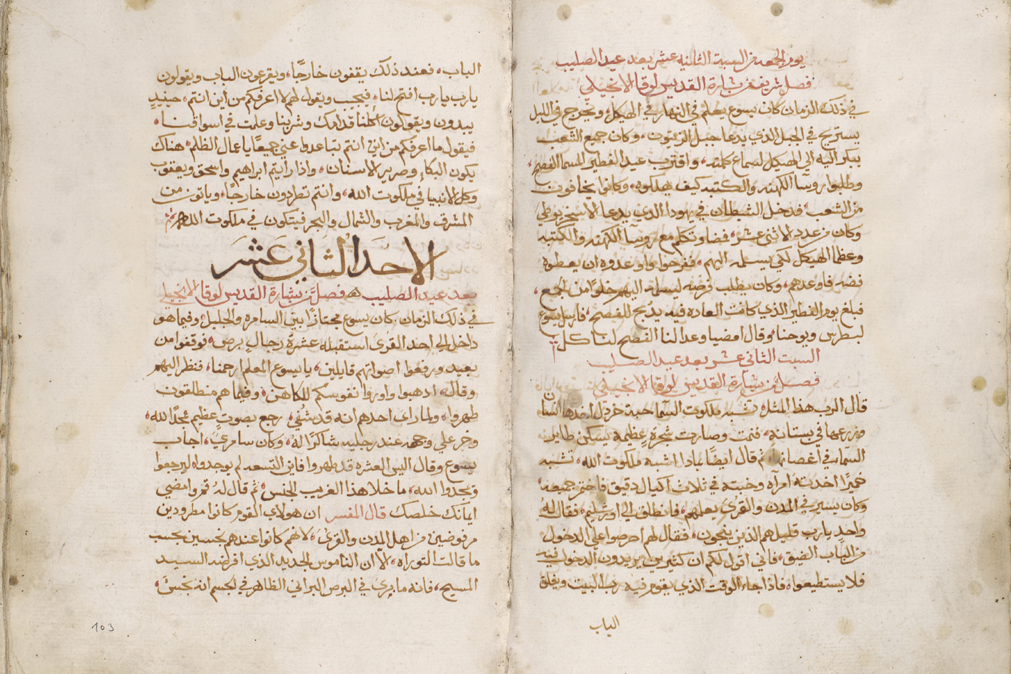 يوم الجمعه من السبت الثانيه عشر بعد عيد الصليب
فصل شريف من بشارة القديس لوقا الانجيلي
في ذلك الزمان كان يسوع يعلم في النهار في الهيكل ويخرج في الليل
يستريح في الجبل الذي يدعا جبل الزيتون وكان جميع الشعب
يبكر اليه الى الهيكل لسماع كلامه واقترب عيد الفطير المسما الفصح
وطلبوا روسا الكهنه والكتبه كيف يهلكوه وكانوا يخافون
من الشعب فدخل الشيطان في يهودا الذي يدعا الاسخريوطي
وكان من عدد الاثني عشر فمضا وتكلم مع روسا الكهنه والكتبه
وعظما الهيكل لكي يسلمه اليهم ففرحوا واوعدوه ان يعطوه
فضه فاوعدهم وكان يطلب فرصه ليسلمه اليهم خلوا من الجمع
فبلغ يوم الفطير الذي كانت العاده فيه يذبح الفصح فارسل يسوع
لبطرس ويوحنا وقال امضيا واعدا لنا الفصح لناكل
السبت الثاني عشر بعد عيد الصليب
فصل من بشارة القديس لوقا الانجيلي
قال الرب هذا المثل تشبه ملكوت السما حبة خردل اخذها انسان
وزرعها في بستانه فنمت وصارت شجرة عظيمة وسكن طاير
السما في اغصانها ثم قال ايضا بماذا اشبه ملكوت الله تشبه
خميرا اخذته امراه وخبته في ثلاث اكيال دقيق فاختمر جميعه
وكان يسير في المدن والقرى يعلم فانطلق الى اورشليم فقال له
واحد يارب قليل هم الذين ينجون فقال لهم احرصوا على الدخول
من الباب الضيق فاني اقول لكم ان كثيرين يريدون الدخول فيه
فلا يستطيعوا فاذا جاء الوقت الذي يقوم فيه رب البيت ويغلق
الباب
الباب فعند ذلك يقفون خارجًا ويقرعون الباب ويقولون
يارب يارب افتح لنا فيجيب ويقول لهم لا اعرفكم من اين انتم حينيد
يبدون ويقولون اكلنا قدامك وشربنا وعلمت في اسواقنا
فيقول ما اعرفكم من اين انتم تباعدوا عني جميعًا يا عمال الظلم هناك
يكون البكا وصرير الاسنان واذا رايتم ابراهيم واسحق ويعقوب
وكل الانبيا في ملكوت الله وانتم تطردون خارجًا وياتون من
المشرق والمغرب والشمال والبحر فيتكون في ملكوت الله
الاحد الثاني عشر
بعد عيد الصليب فصل من بشارة القديس لوقا الانجيلي
في ذلك الزمان كان يسوع مجتازًا بين السامره والجليل وفيما هو
داخل الى احد القرى استقبله عشرة رجال برص فوقفوا من
بعيد ورفعوا اصواتهم قايلين يا يسوع المعلم ارحمنا فنظر اليهم
وقال اذهبوا واروا نفوسكم للكاهن وفيما هم منطلقون
طهروا ولما راى احدهم انه قد شفي رجع بصوت عظيم مجدًا لله
وخر على وجهه عند رجليه شاكرًا له وكان سامري اجاب
يسوع وقال اليس العشره قد طهروا فاين التسعه لم يوجدوا ليرجعوا
ويمجدوا الله ما خلا هذا الغريب الجنس ثم قال له قم وامضي
ايمانك خلصك قال المفسر ان هولاي القوم كانوا مطرودين
مرفوضين من اهل المدن والقرى لانهم كانوا عندهم نجسين بحسب
ما قالت التوراه لا ان الناموس الجديد الذي افرضه السيد
المسيح فانه ما يرى في البرص البراني الظاهر في الجسم انه نجس
103